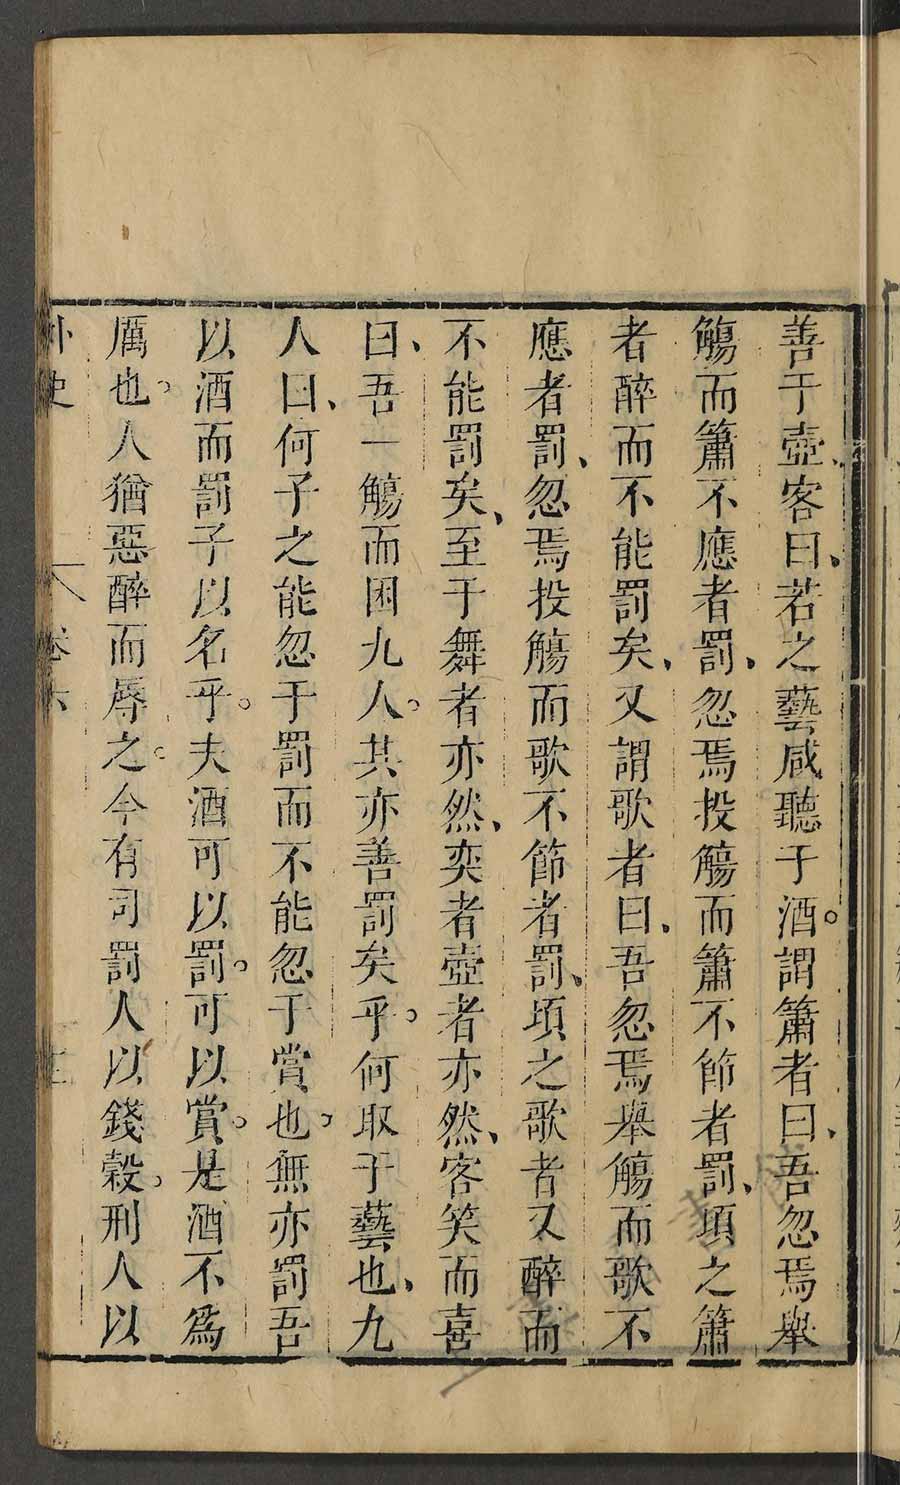 善于壺、客曰、若之藝咸聽于酒。謂簫者曰、吾忽焉舉
觴而簫不應者罰、忽焉投觴而簫不節者罰、頃之簫
者醉而不能罰矣、又謂歌者曰、吾忽焉舉觴而歌不
應者罰、忽焉投觴而歌不節者罰、頃之歌者又醉而
不能罰矣、至于舞者亦然、奕者壺者亦然、客笑而喜
曰、吾一觴而困九人。其亦善罰矣乎。何取于藝也、九
人曰、何子之能忽于罰而不能忽于賞也。無亦罰吾
以酒而罰子以名乎。夫酒可以罰。可以賞。是酒不為
厲也。人猶惡醉而辱之。今有司罰人以錢穀。刑人以
外史 卷六